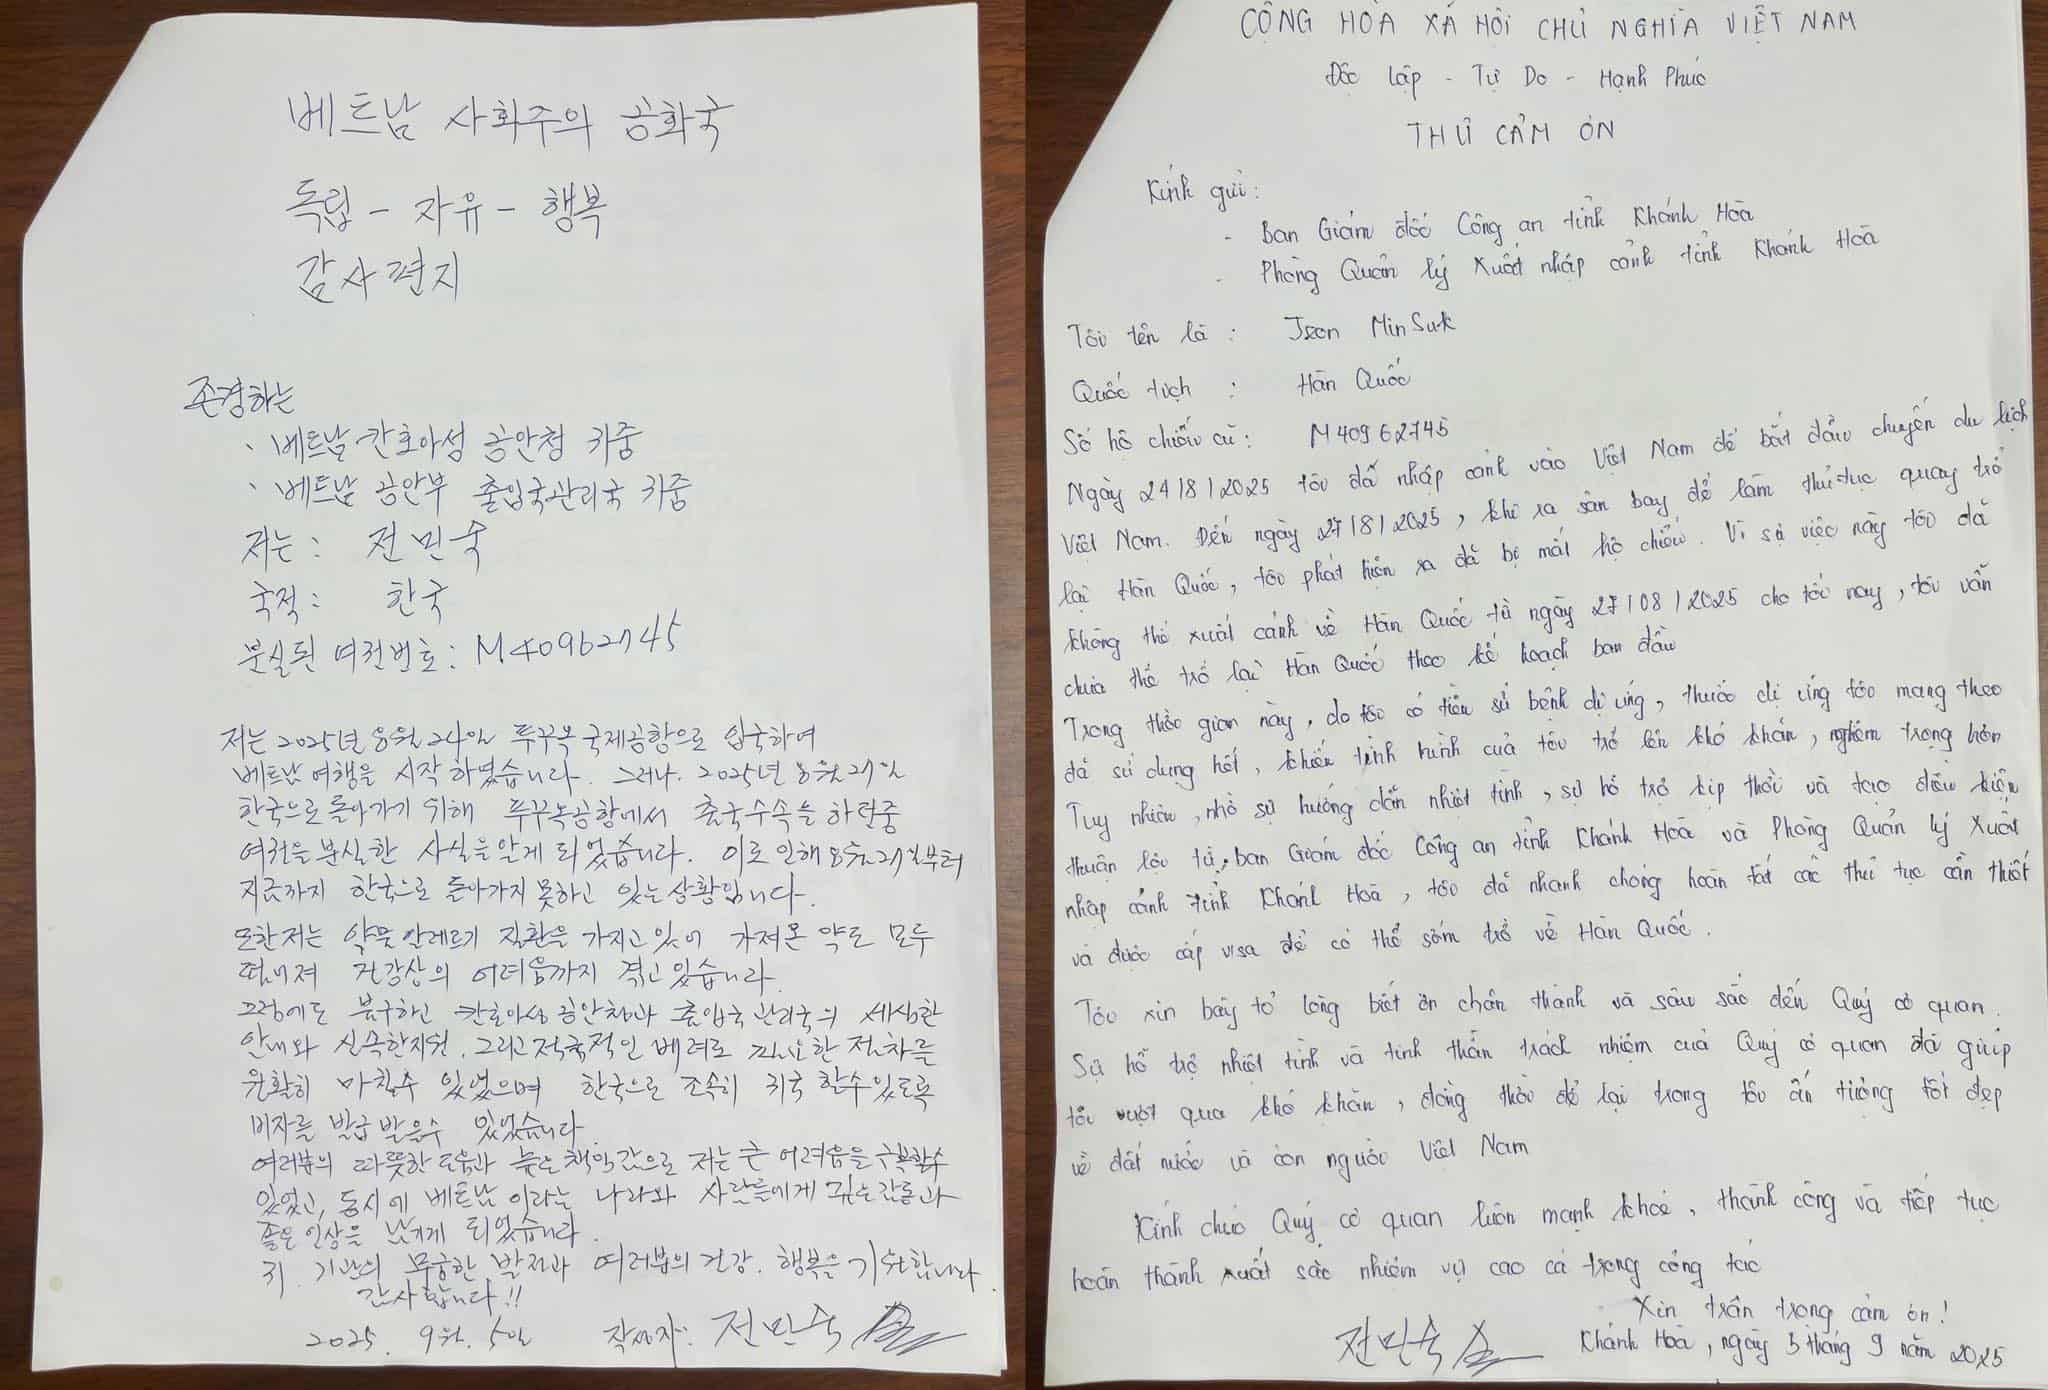 베트남 사회주의 공화국
독립 - 자유 - 행복
감사편지
존경하는
· 베트남 칸호아성 공안청 귀중
· 베트남 공안부 출입국관리국 귀중
저는 : 전민숙
국적 : 한국
분실된 여권번호 : M40962745
저는 2025년 8월 24일 푸꾸옥 국제공항으로 입국하여
베트남 여행을 시작 하였습니다. 그러나. 2025년 8월 27일
한국으로 돌아가기 위해 푸꾸옥공항에서 출국수속을 하던중
여권을 분실한 사실을 알게 되었습니다. 이로 인해 8월27일부터
지금까지 한국으로 돌아가지 못하고 있는 상황입니다.
또한 저는 약물 알레르기 질환을 가지고 있어 가져온 약도 모두
떨어져 건강상의 어려움까지 겪고 있습니다.
그럼에도 불구하고 칸호아성 공안청과 출입국 관리국의 세심한
안내와 신속한지원. 그리고 적극적인 배려로 필요한 절차를
원활히 마칠수 있었으며 한국으로 조속히 귀국 할수 있도록
비자를 발급 받을수 있었습니다.
여러분의 따뜻한 도움과 높은 책임감으로 저는 큰 어려움을 극복할수
있었고, 동시에 베트남 이라는 나라와 사람들에게 깊은 감동과
좋은 인상을 남기게 되었습니다.
귀. 기관의 무궁한 발전과 여러분의 건강. 행복을 기원합니다.
감사합니다!!
2025. 9월. 5일 작성자: 전민숙
CỘNG HÒA XÃ HỘI CHỦ NGHĨA VIỆT NAM
Độc lập - Tự Do - Hạnh Phúc
THƯ CẢM ƠN
Kính gửi :
- Ban Giám đốc Công an tỉnh Khánh Hòa
- Phòng Quản lý Xuất nhập cảnh tỉnh Khánh Hòa
Tôi tên là : Jeon MinSuk
Quốc tịch : Hàn Quốc
Số hộ chiếu cũ : M40962745
Ngày 24/8/2025 tôi đã nhập cảnh vào Việt Nam để bắt đầu chuyến du lịch
Việt Nam. Đến ngày 27/8/2025, khi ra sân bay để làm thủ tục quay trở
lại Hàn Quốc, tôi phát hiện ra đã bị mất hộ chiếu. Vì sự việc này tôi đã
không thể xuất cảnh về Hàn Quốc từ ngày 27/08/2025 cho tới nay, tôi vẫn
chưa thể trở lại Hàn Quốc theo kế hoạch ban đầu
Trong thời gian này, do tôi có tiền sử bệnh dị ứng, thuốc dị ứng tôi mang theo
đã sử dụng hết, khiến tình hình của tôi trở lên khó khăn, nghiêm trọng hơn
Tuy nhiên, nhờ sự hướng dẫn nhiệt tình, sự hỗ trợ kịp thời và tạo điều kiện
thuận lợi từ ban Giám đốc Công an tỉnh Khánh Hòa và Phòng Quản lý Xuất
nhập cảnh tỉnh Khánh Hòa, tôi đã nhanh chóng hoàn tất các thủ tục cần thiết
và được cấp visa để có thể sớm trở về Hàn Quốc.
Tôi xin bày tỏ lòng biết ơn chân thành và sâu sắc đến Quý cơ quan.
Sự hỗ trợ nhiệt tình và tinh thần trách nhiệm của Quý cơ quan đã giúp
tôi vượt qua khó khăn, đồng thời để lại trong tôi ấn tượng tốt đẹp
về đất nước và con người Việt Nam
Kính chúc Quý cơ quan luôn mạnh khoẻ, thành công và tiếp tục
hoàn thành xuất sắc nhiệm vụ cao cả trong công tác
Xin trân trọng cảm ơn!
전민숙 Khánh Hòa, ngày 5 tháng 9 năm 2025